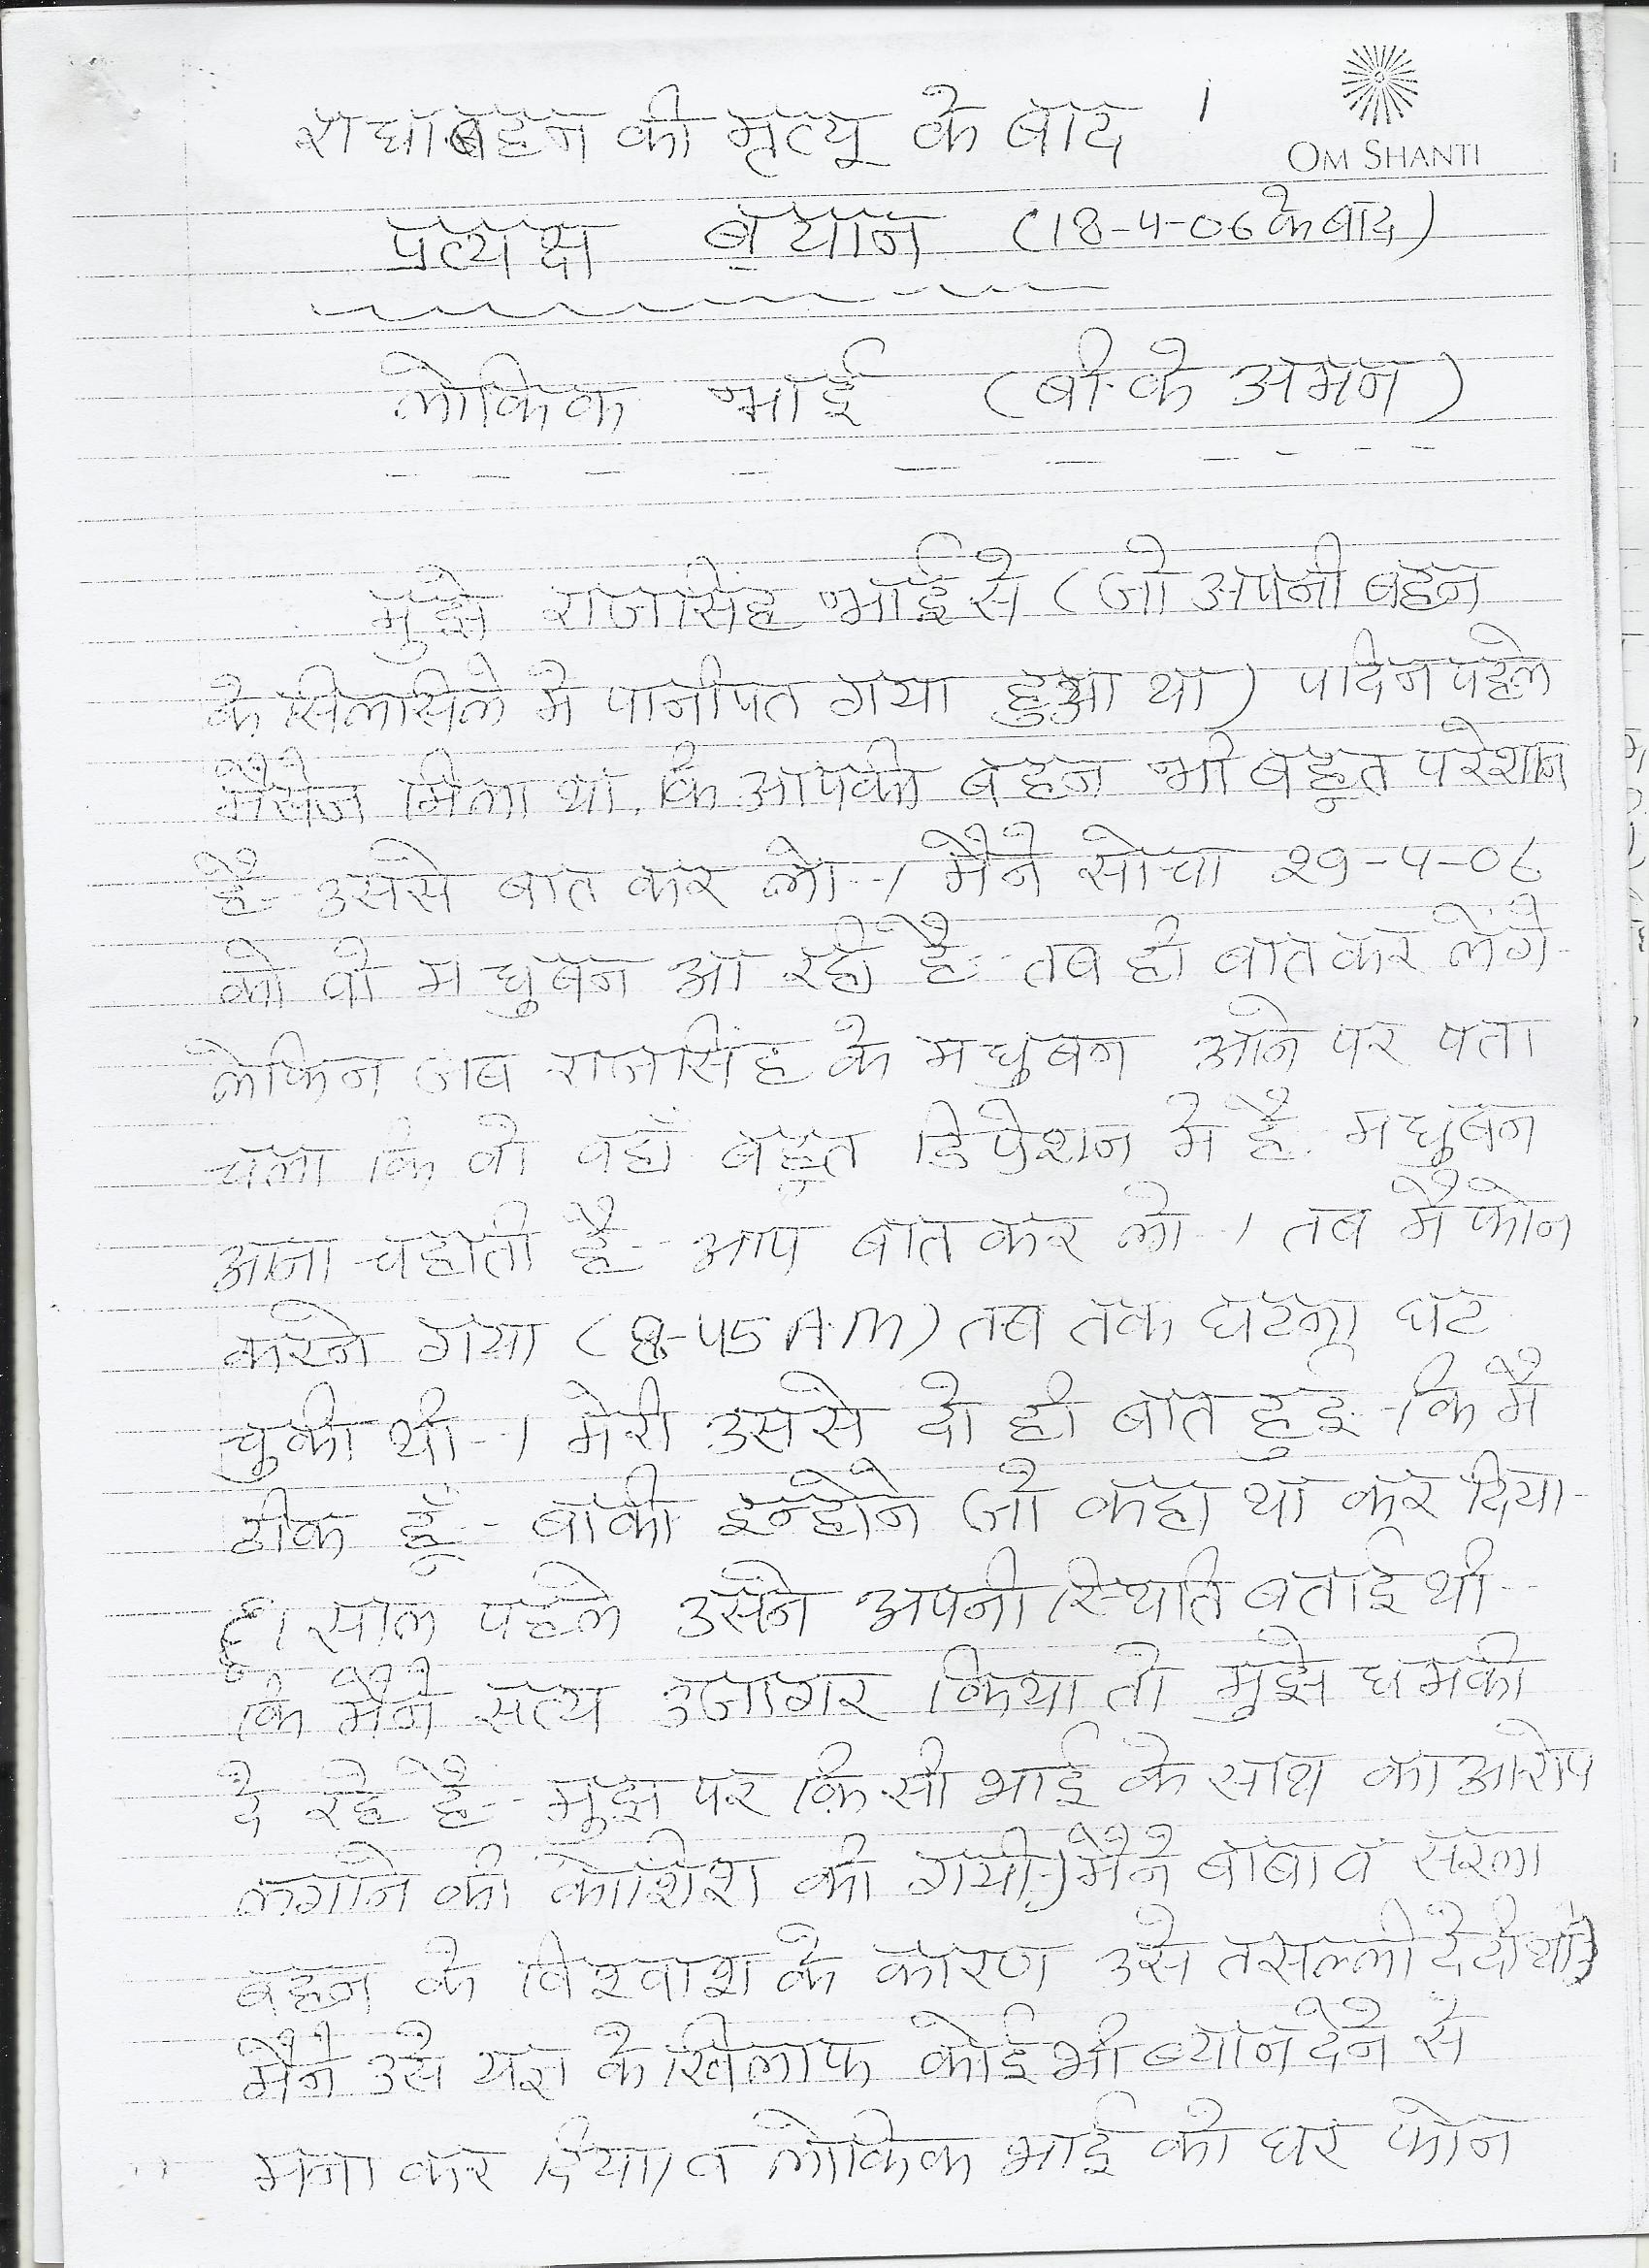 राधा बहन की मृत्यू के बाद 1
OM SHANTI
प्रत्यक्ष ब्यान (18-4-06 के बाद)
लौकिक भाई (बी.के अमन)
मुझे राजसिंह भाई से (जो अपनी बहन
के सिलसिले मे पानीपत गया हुआ था) 4 दिन पहले
मैसेज मिला था, कि आपकी बहन भी बहूत परेशान
है- उससे बात कर लो-। मैने सोचा 29-4-06
को वो मधुबन आ रही है- तब ही बात कर लेंगे-
लेकिन जब राजसिंह के मधुबन आने पर पता
चला कि वो वहाँ बहूत डिप्रेशन मे है- मधुबन
आना चहाती है- आप बात कर लो-। तब मै फोन
करने गया (8-45 A.M) तब तक घटना घट
चुकी थी-। मेरी उससे दो ही बात हुई-। कि मै
ठीक हूँ- बाकी इन्होने जो कहा था कर दिया-
साल पहले उसने अपनी स्थिति बताई थी-
कि मैने सत्य उजागर किया तो मुझे धमकी
दे रहे है- मुझ पर किसी भाई के साथ का आरोप
लगाने की कोशिश की गयी-) मैने बाबा व सरला
बहन के विश्वाश के कारण उसे तसल्ली दे दी थी)
मैने उसे यज्ञ के खिलाफ कोई भी ब्यान देने से
मना कर दिया। व लौकिक भाई को घर फोन